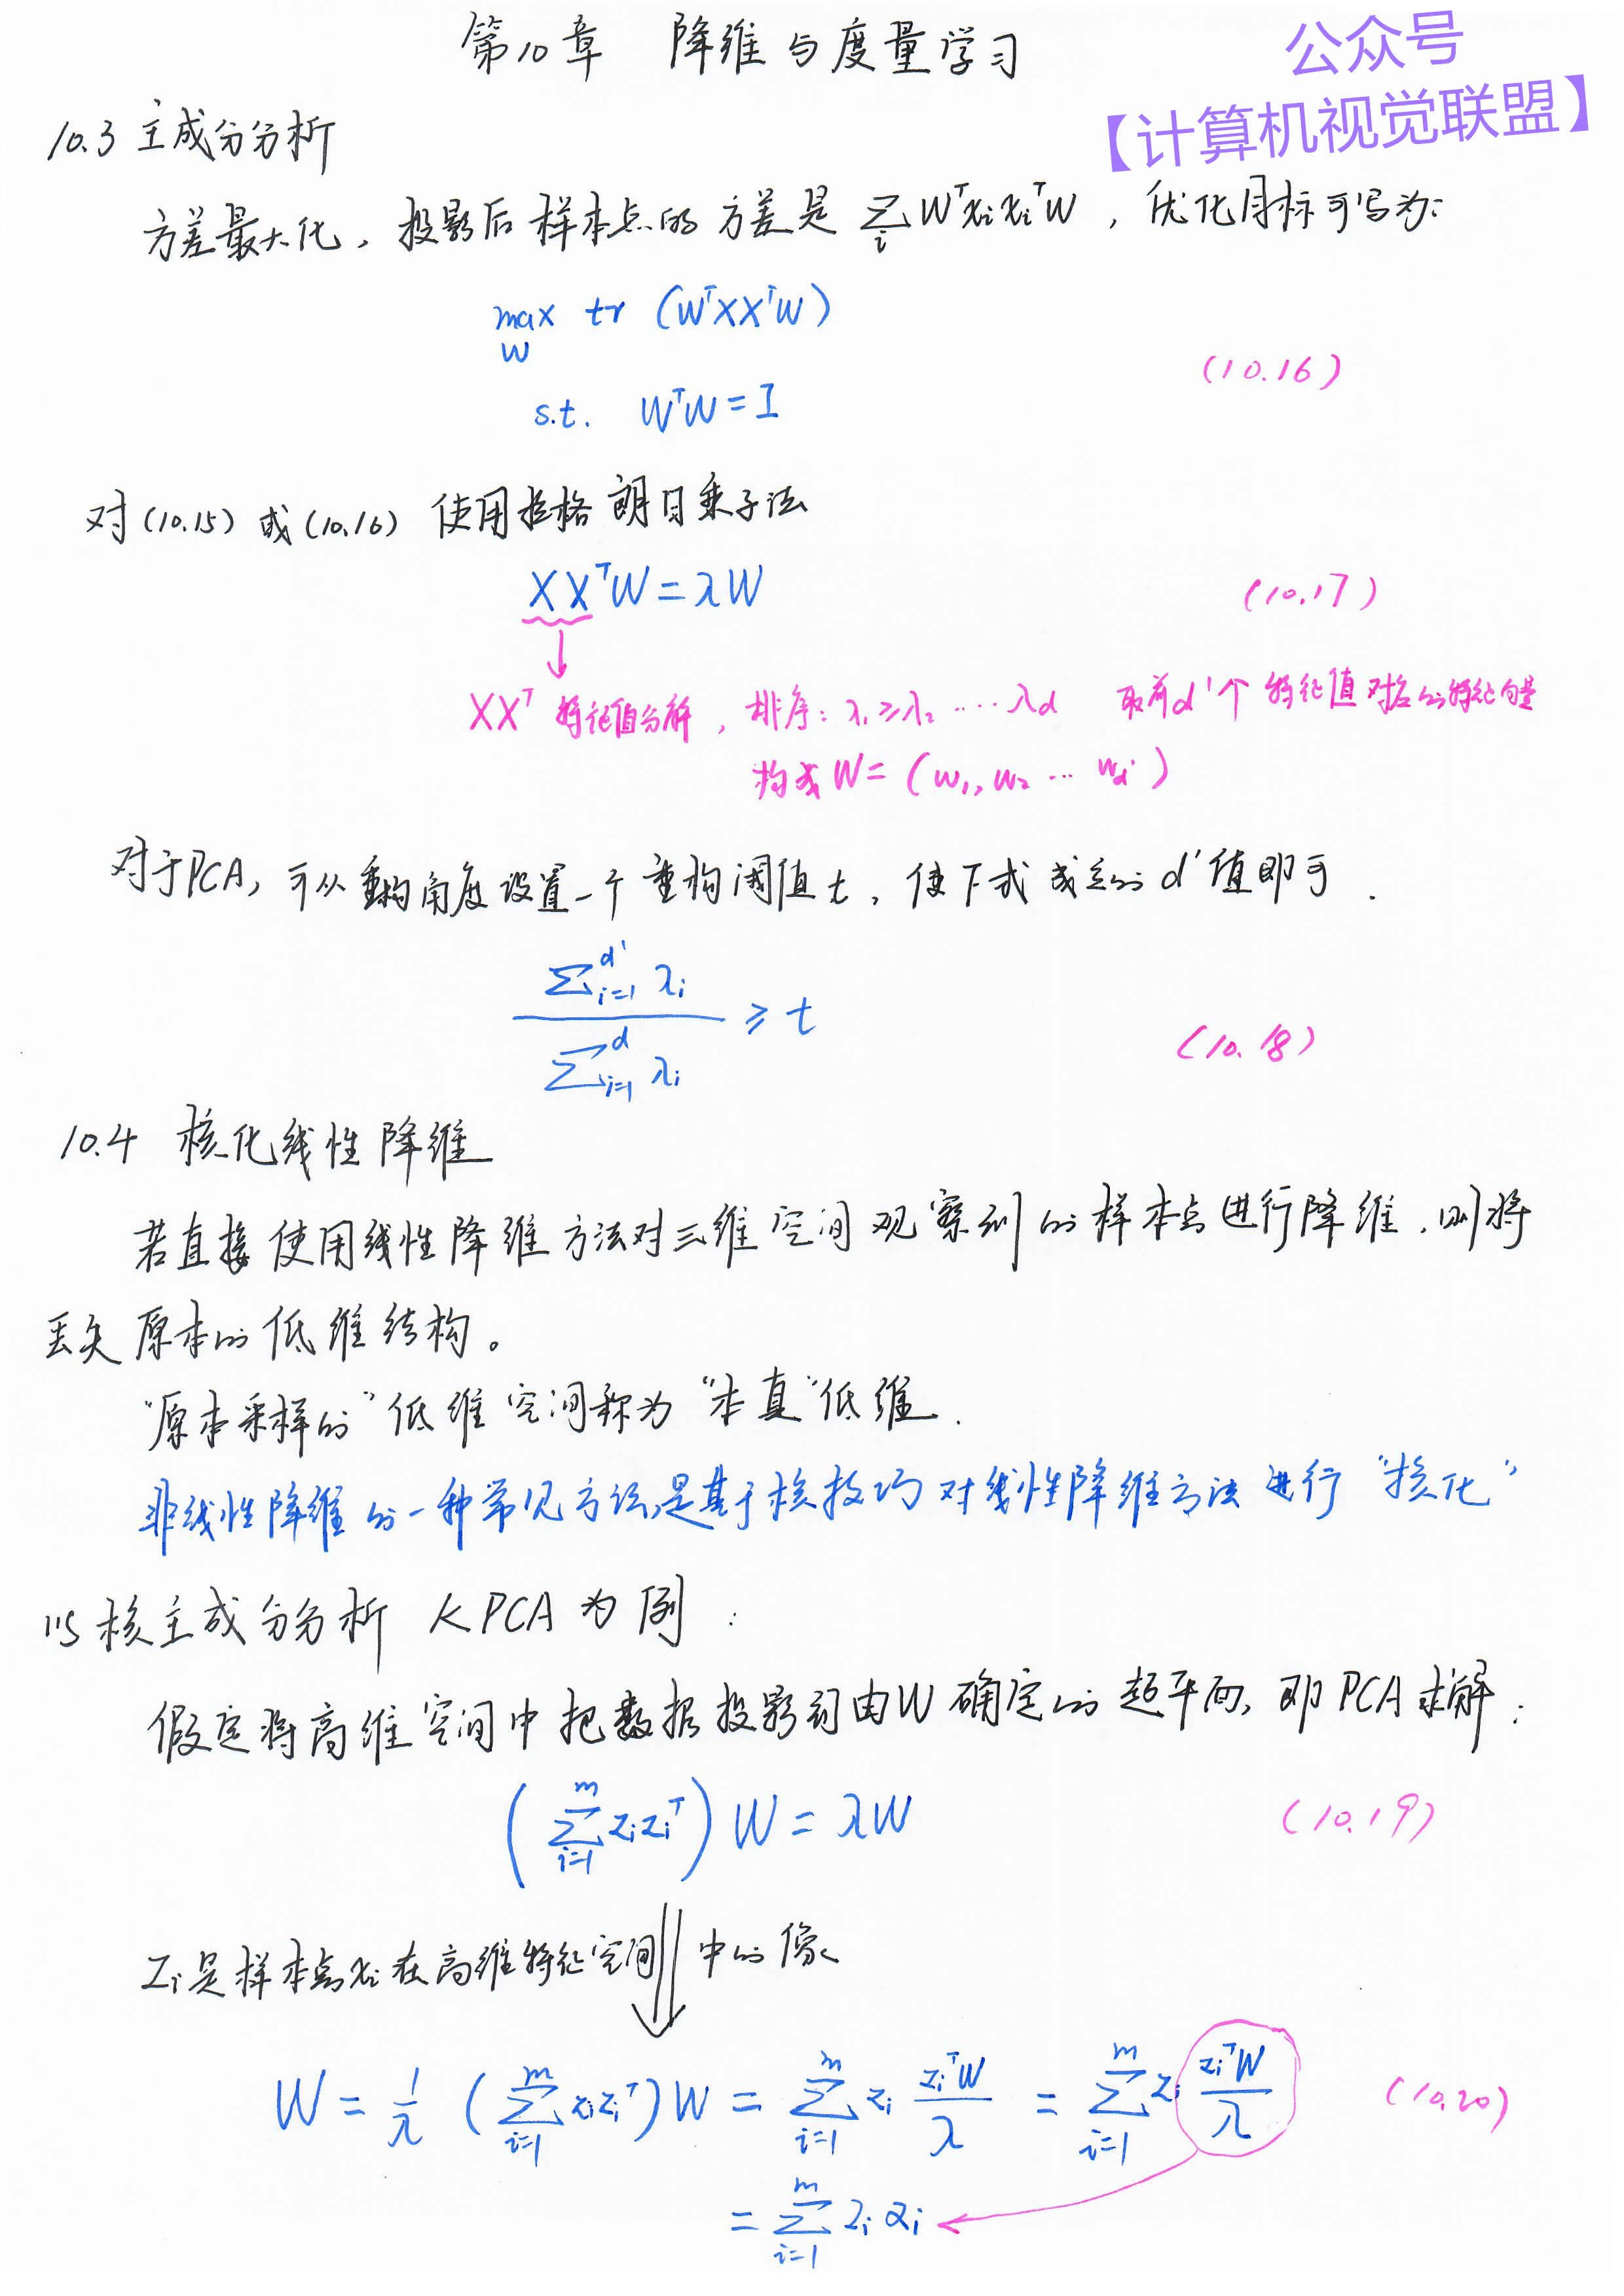 第10章 降维与度量学习
公众号
【计算机视觉联盟】
10.3 主成分分析
方差最大化，投影后样本点的方差是 ∑_i WᵀxᵢxᵢᵀW ，优化目标可写为：
max_W tr (WᵀXXᵀW)
s.t. WᵀW = I
(10.16)
对(10.15)或(10.16) 使用拉格朗日乘子法
XXᵀW = λW (10.17)
XXᵀ 特征值分解，排序：λ₁≥λ₂ ···· λd 取前d'个特征值对应的特征向量
构成W = (w₁, w₂ ··· wd')
对于PCA，可从重构角度设置一个重构阈值t，使下式成立的d'值即可.
∑_{i=1}^{d'} λᵢ / ∑_{i=1}^{d} λᵢ ≥ t (10.18)
10.4 核化线性降维
若直接使用线性降维方法对三维空间观察到的样本点进行降维，则将
丢失原本的低维结构。
“原本采样的”低维空间称为“本真”低维.
非线性降维的一种常见方法,是基于核技巧对线性降维方法进行“核化”
115 核主成分分析 KPCA 为例：
假定将高维空间中把数据投影到由W确定的超平面，即PCA求解：
(∑_{i=1}^{m} zᵢzᵢᵀ) W = λW (10.19)
zᵢ是样本点xᵢ在高维特征空间中的像
W = 1/λ (∑_{i=1}^{m} zᵢzᵢᵀ) W = ∑_{i=1}^{m} zᵢ zᵢᵀW/λ = ∑_{i=1}^{m} zᵢ zᵢᵀW/λ (10.20)
= ∑_{i=1}^{m} zᵢ αᵢ